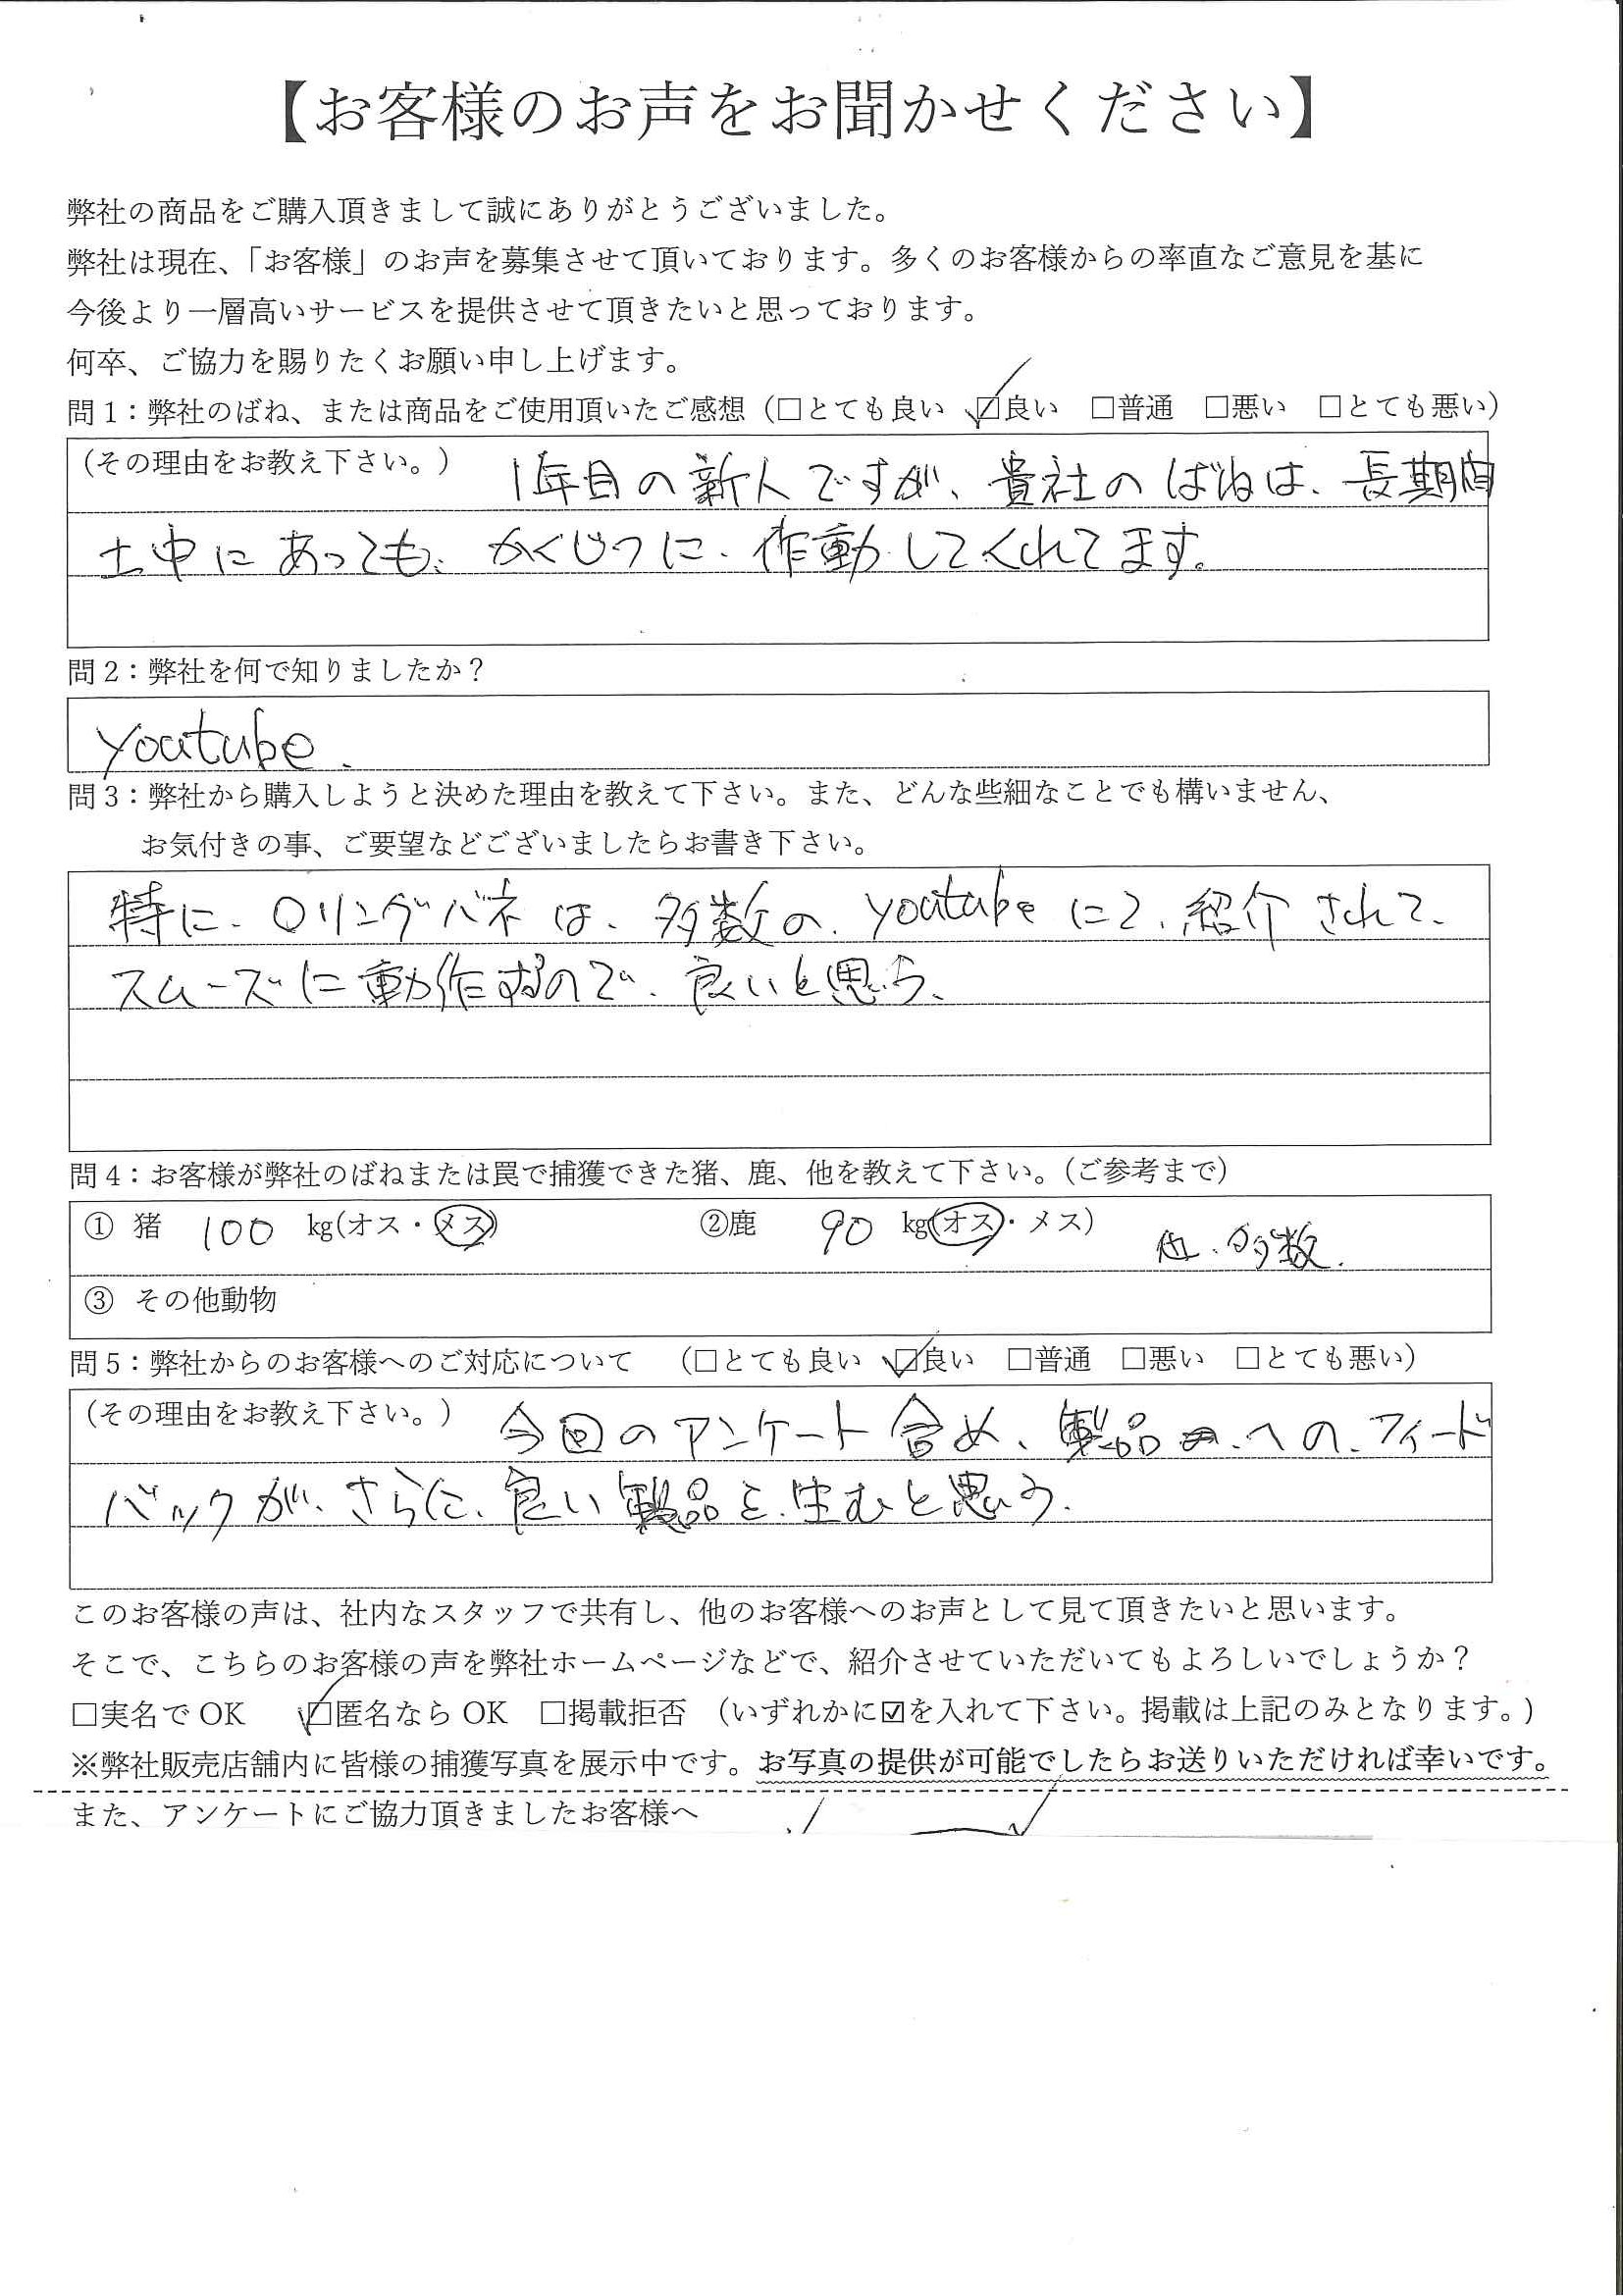 【お客様のお声をお聞かせください】
弊社の商品をご購入頂きまして誠にありがとうございました。
弊社は現在、「お客様」のお声を募集させて頂いております。多くのお客様からの率直なご意見を基に
今後より一層高いサービスを提供させて頂きたいと思っております。
何卒、ご協力を賜りたくお願い申し上げます。
問1：弊社のばね、または商品をご使用頂いたご感想（□とても良い ☑良い □普通 □悪い □とても悪い）
（その理由をお教え下さい。） 1年目の新人ですが、貴社のばねは、長期間
土中にあっても、かくじつに、作動してくれてます。
問2：弊社を何で知りましたか？
youtube.
問3：弊社から購入しようと決めた理由を教えて下さい。また、どんな些細なことでも構いません、
お気付きの事、ご要望などございましたらお書き下さい。
特に、Oリングバネは、多数の、youtubeにて、紹介されて、
スムーズに動作するので、良いと思う、
問4：お客様が弊社のばねまたは罠で捕獲できた猪、鹿、他を教えて下さい。（ご参考まで）
① 猪 100 kg(オス・メス) ②鹿 90 kg(オス・メス) 他、多数.
③ その他動物
問5：弊社からのお客様へのご対応について （□とても良い ☑良い □普通 □悪い □とても悪い）
（その理由をお教え下さい。） 今回のアンケート含め、製品、への、フィード
バックが、さらに、良い製品を、生むと思う.
このお客様の声は、社内なスタッフで共有し、他のお客様へのお声として見て頂きたいと思います。
そこで、こちらのお客様の声を弊社ホームページなどで、紹介させていただいてもよろしいでしょうか？
□実名でOK ☑匿名ならOK □掲載拒否 （いずれかに☑を入れて下さい。掲載は上記のみとなります。）
※弊社販売店舗内に皆様の捕獲写真を展示中です。お写真の提供が可能でしたらお送りいただければ幸いです。
また、アンケートにご協力頂きましたお客様へ